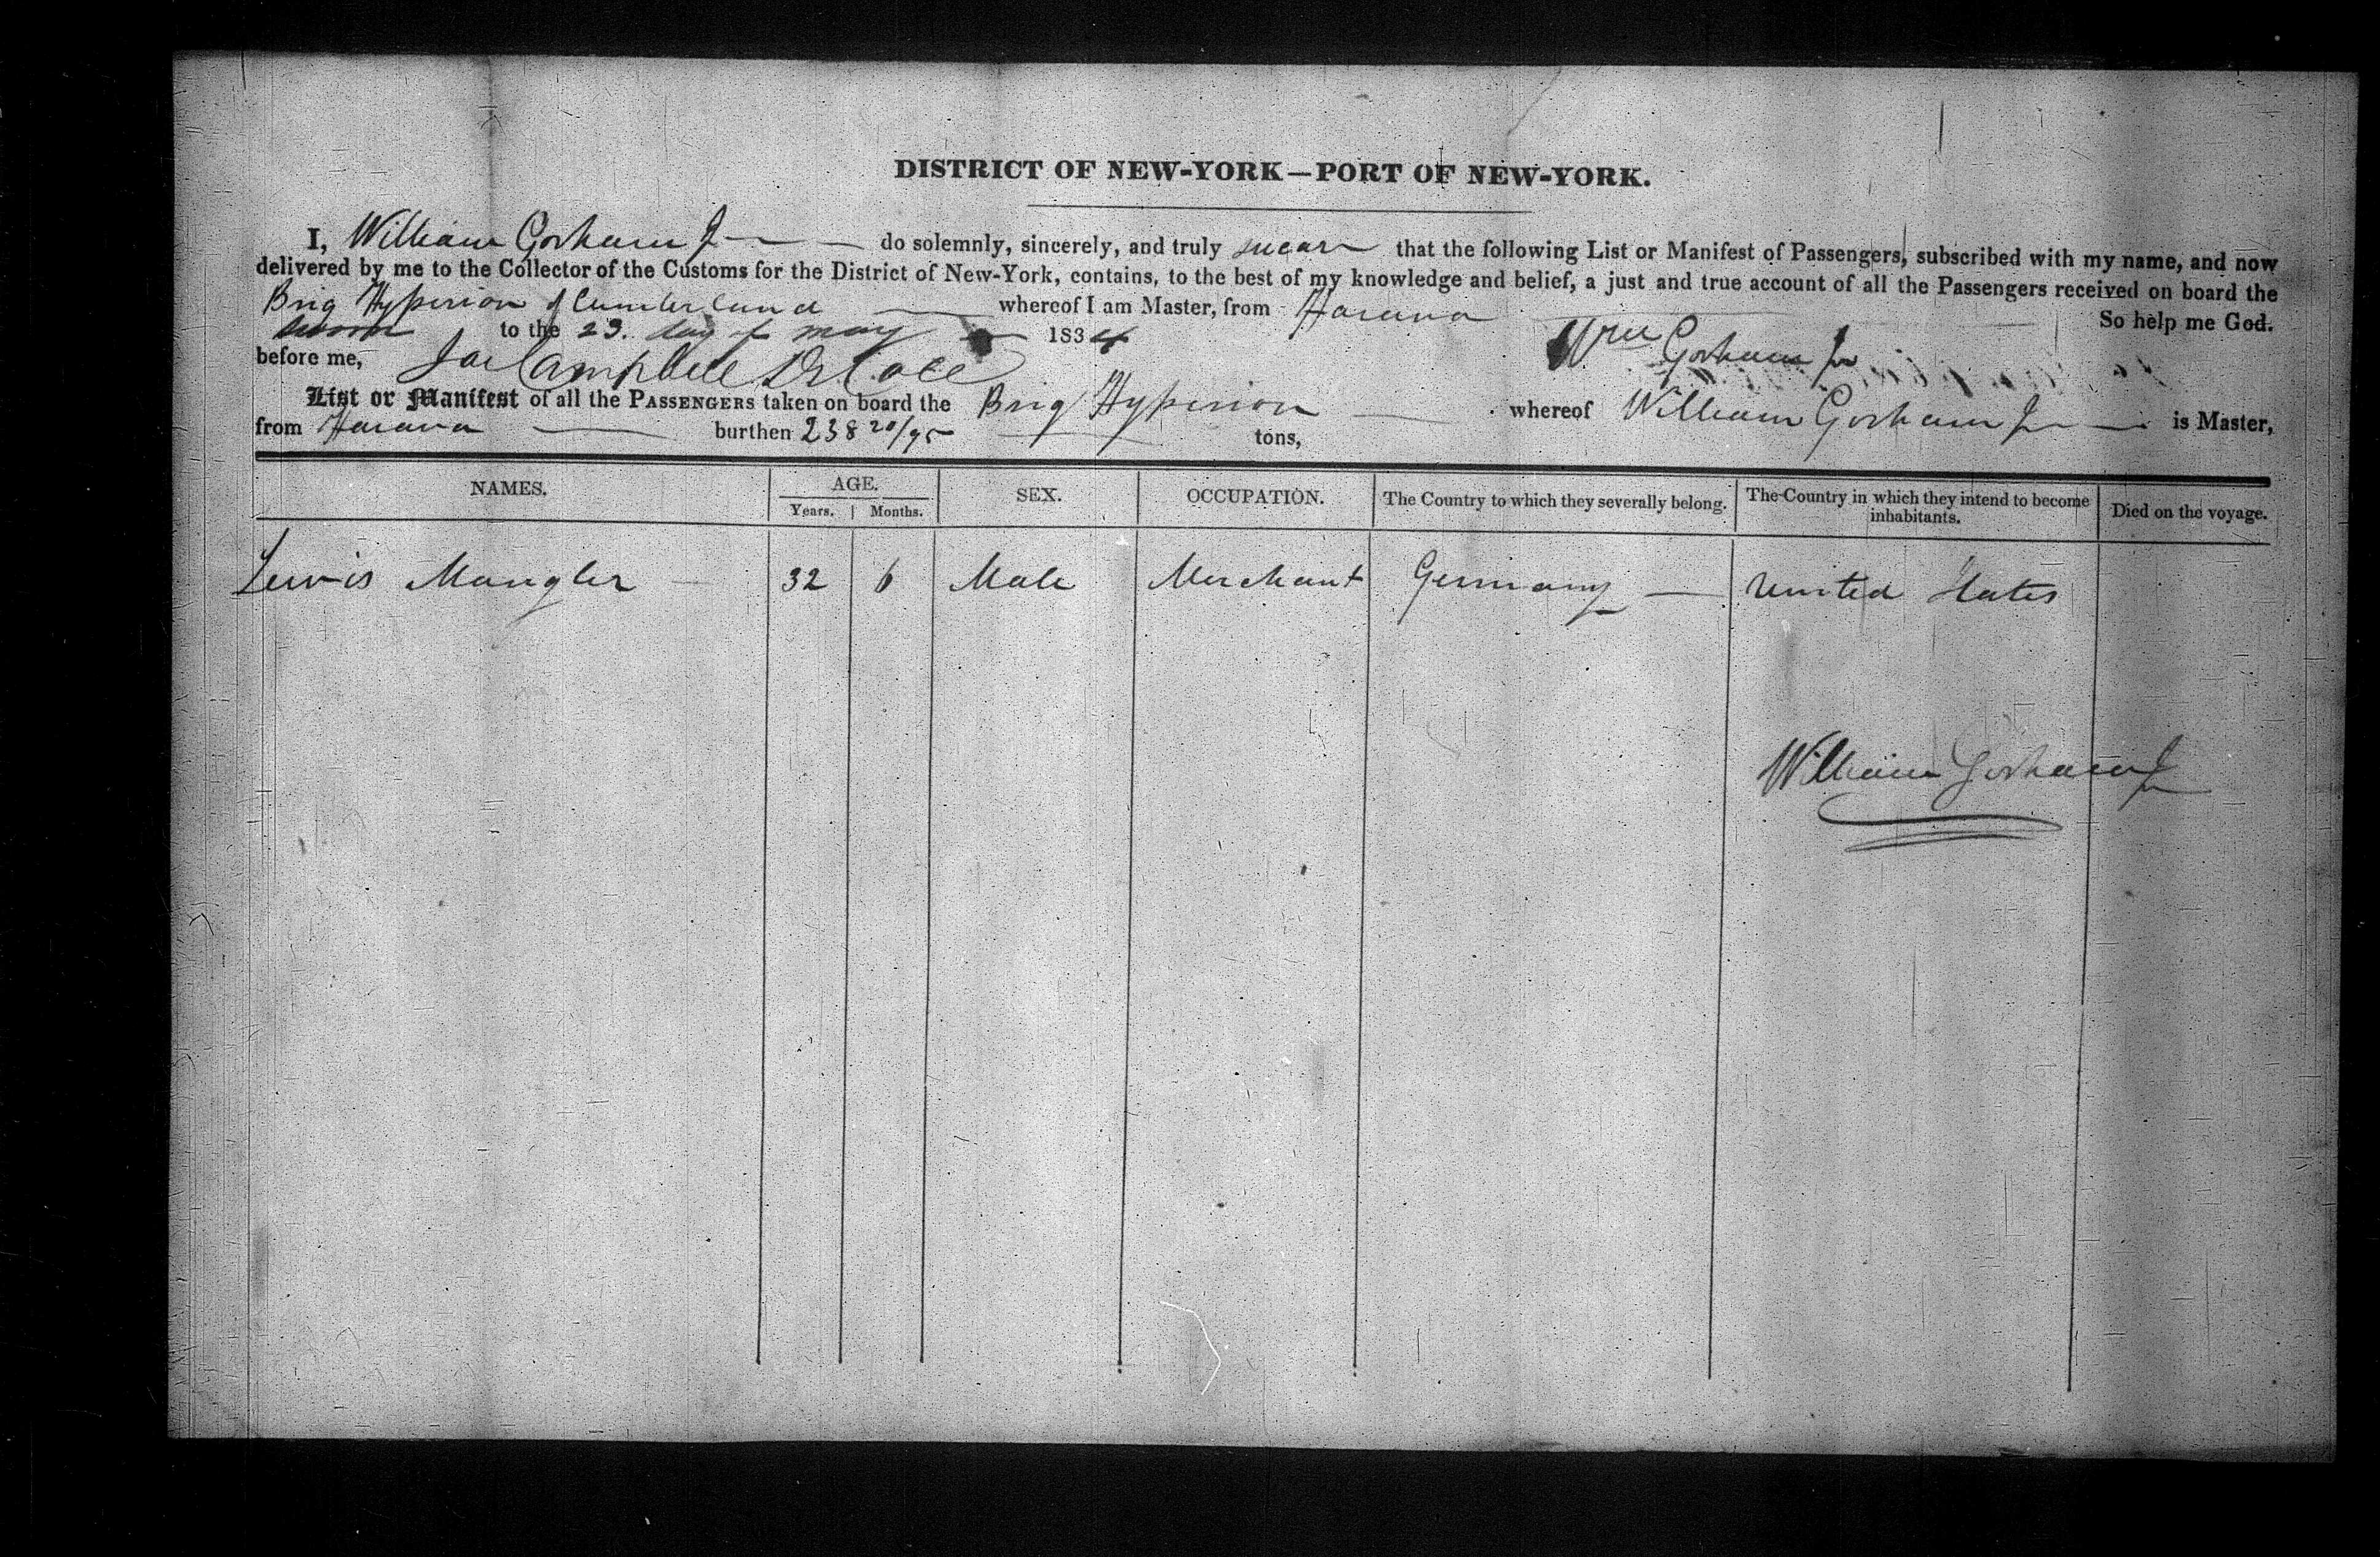 DISTRICT OF NEW-YORK—PORT OF NEW-YORK.
I, William Gorham Jr do solemnly, sincerely, and truly swear that the following List or Manifest of Passengers, subscribed with my name, and now
delivered by me to the Collector of the Customs for the District of New-York, contains, to the best of my knowledge and belief, a just and true account of all the Passengers received on board the
Brig Hyperion of Cumberland whereof I am Master, from Havana
So help me God.
sworn to the 23. day of may 1834
Wm Gorham Jr
before me, Campbell
List or Manifest of all the PASSENGERS taken on board the Brig Hyperion whereof William Gorham Jr is Master,
from Havana burthen 238 20/95 tons,
NAMES. AGE. SEX. OCCUPATION. The Country to which they severally belong. The Country in which they intend to become inhabitants. Died on the voyage.
Years. Months.
Lewis Mangler 32 6 Male Merchant Germany United States
William Gorham Jr